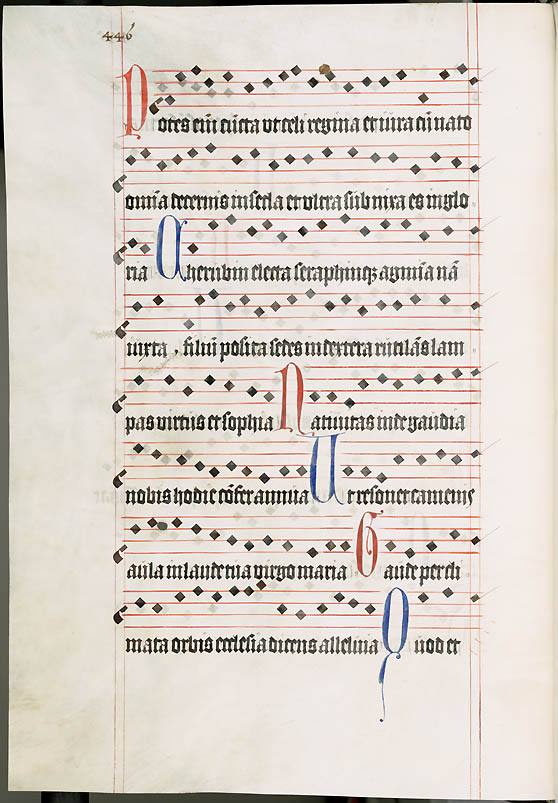 446
Potes eni cūcta vt celi regina et iura cū nato
omīa decernis in secla et vltra sub nixa es in glo
ria Cherubin electa seraphinqȝ agmīa nā
iuxta . filiū posita sedes in dextera rutilās lam
pas virtus et sophia Natiuitas inde gaudia
nobis hodie cōfert annua Ut resonet camenis
aula in laude tua virgo maria Gaude per cli
mata orbis ecclesia dicens alleluia Quod et